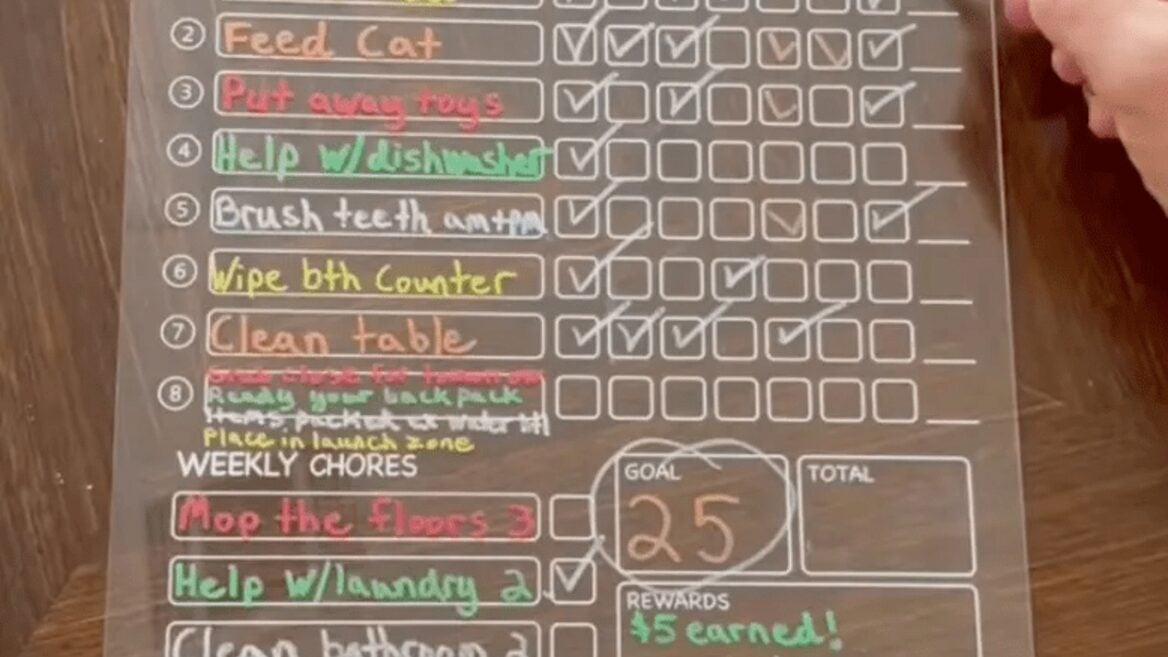 2 Feed Cat
3 Put away toys
4 Help w/dishwasher
5 Brush teeth am+pm
6 Wipe bth Counter
7 Clean table
for tomorrow
8 Ready your backpack
Items packed ex water btl
Place in launch zone
WEEKLY CHORES
GOAL
25
TOTAL
Mop the floors 3
Help w/laundry 2
Clean bathroom 2
REWARDS
$5 earned!